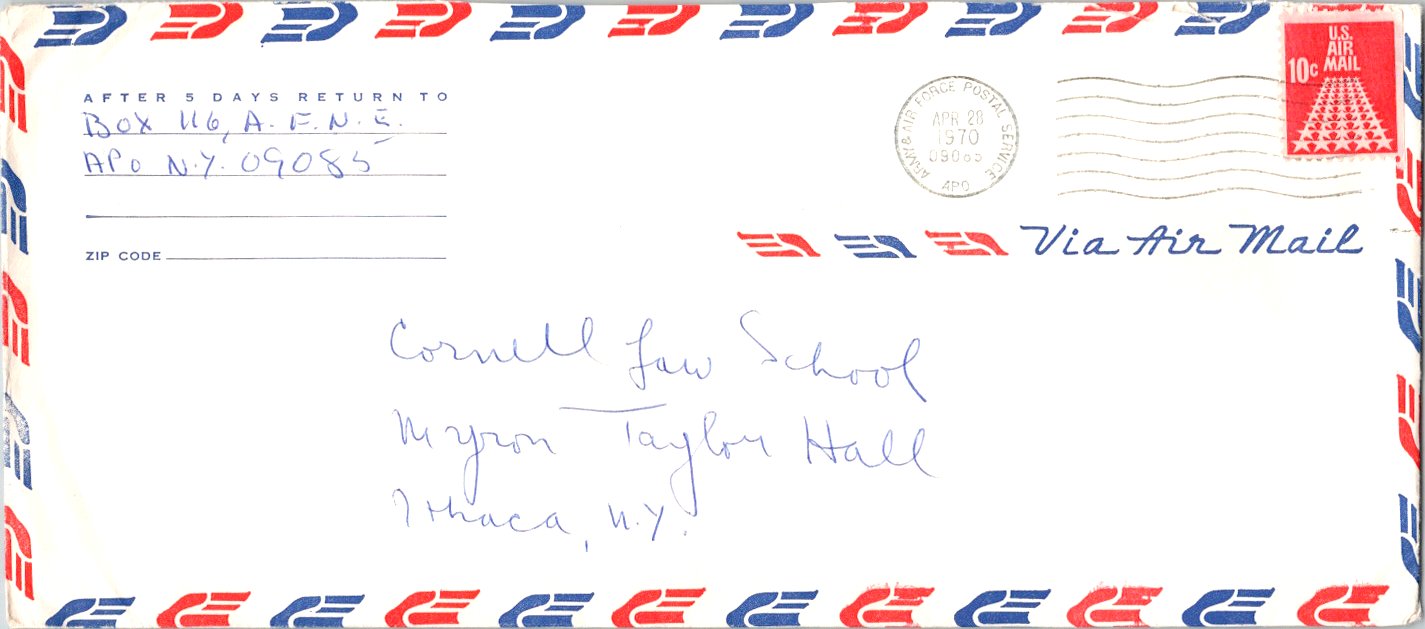 AFTER 5 DAYS RETURN TO
BOX 116, A. F. N. E.
APO N.Y. 09085
ZIP CODE
ARMY & AIR FORCE POSTAL SERVICE
APR 28
1970
APO
U.S.
AIR
MAIL
10c
Via Air Mail
Cornell Law School
Myron Taylor Hall
Ithaca, N.Y.